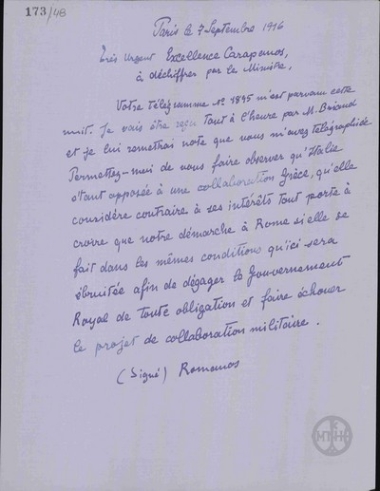 173/48
Paris le 7 Septembre 1916
Très Urgent Excellence Carapanos,
à déchiffrer par le Ministre,
Votre télégramme No 1895 m'est parvenu cette
nuit. Je vais être reçu tout à l'heure par M. Briand
et je lui remettrai note que vous m'avez télégraphiée
Permettez-moi de vous faire observer qu'Italie
étant opposée à une collaboration Grèce, qu'elle
considère contraire à ses intérêts tout porte à
croire que notre démarche à Rome si elle se
fait dans les mêmes conditions qu'ici sera
ébruitée afin de dégager le Gouvernement
Royal de toute obligation et faire échouer
le projet de collaboration militaire.
(Signé) Romanos